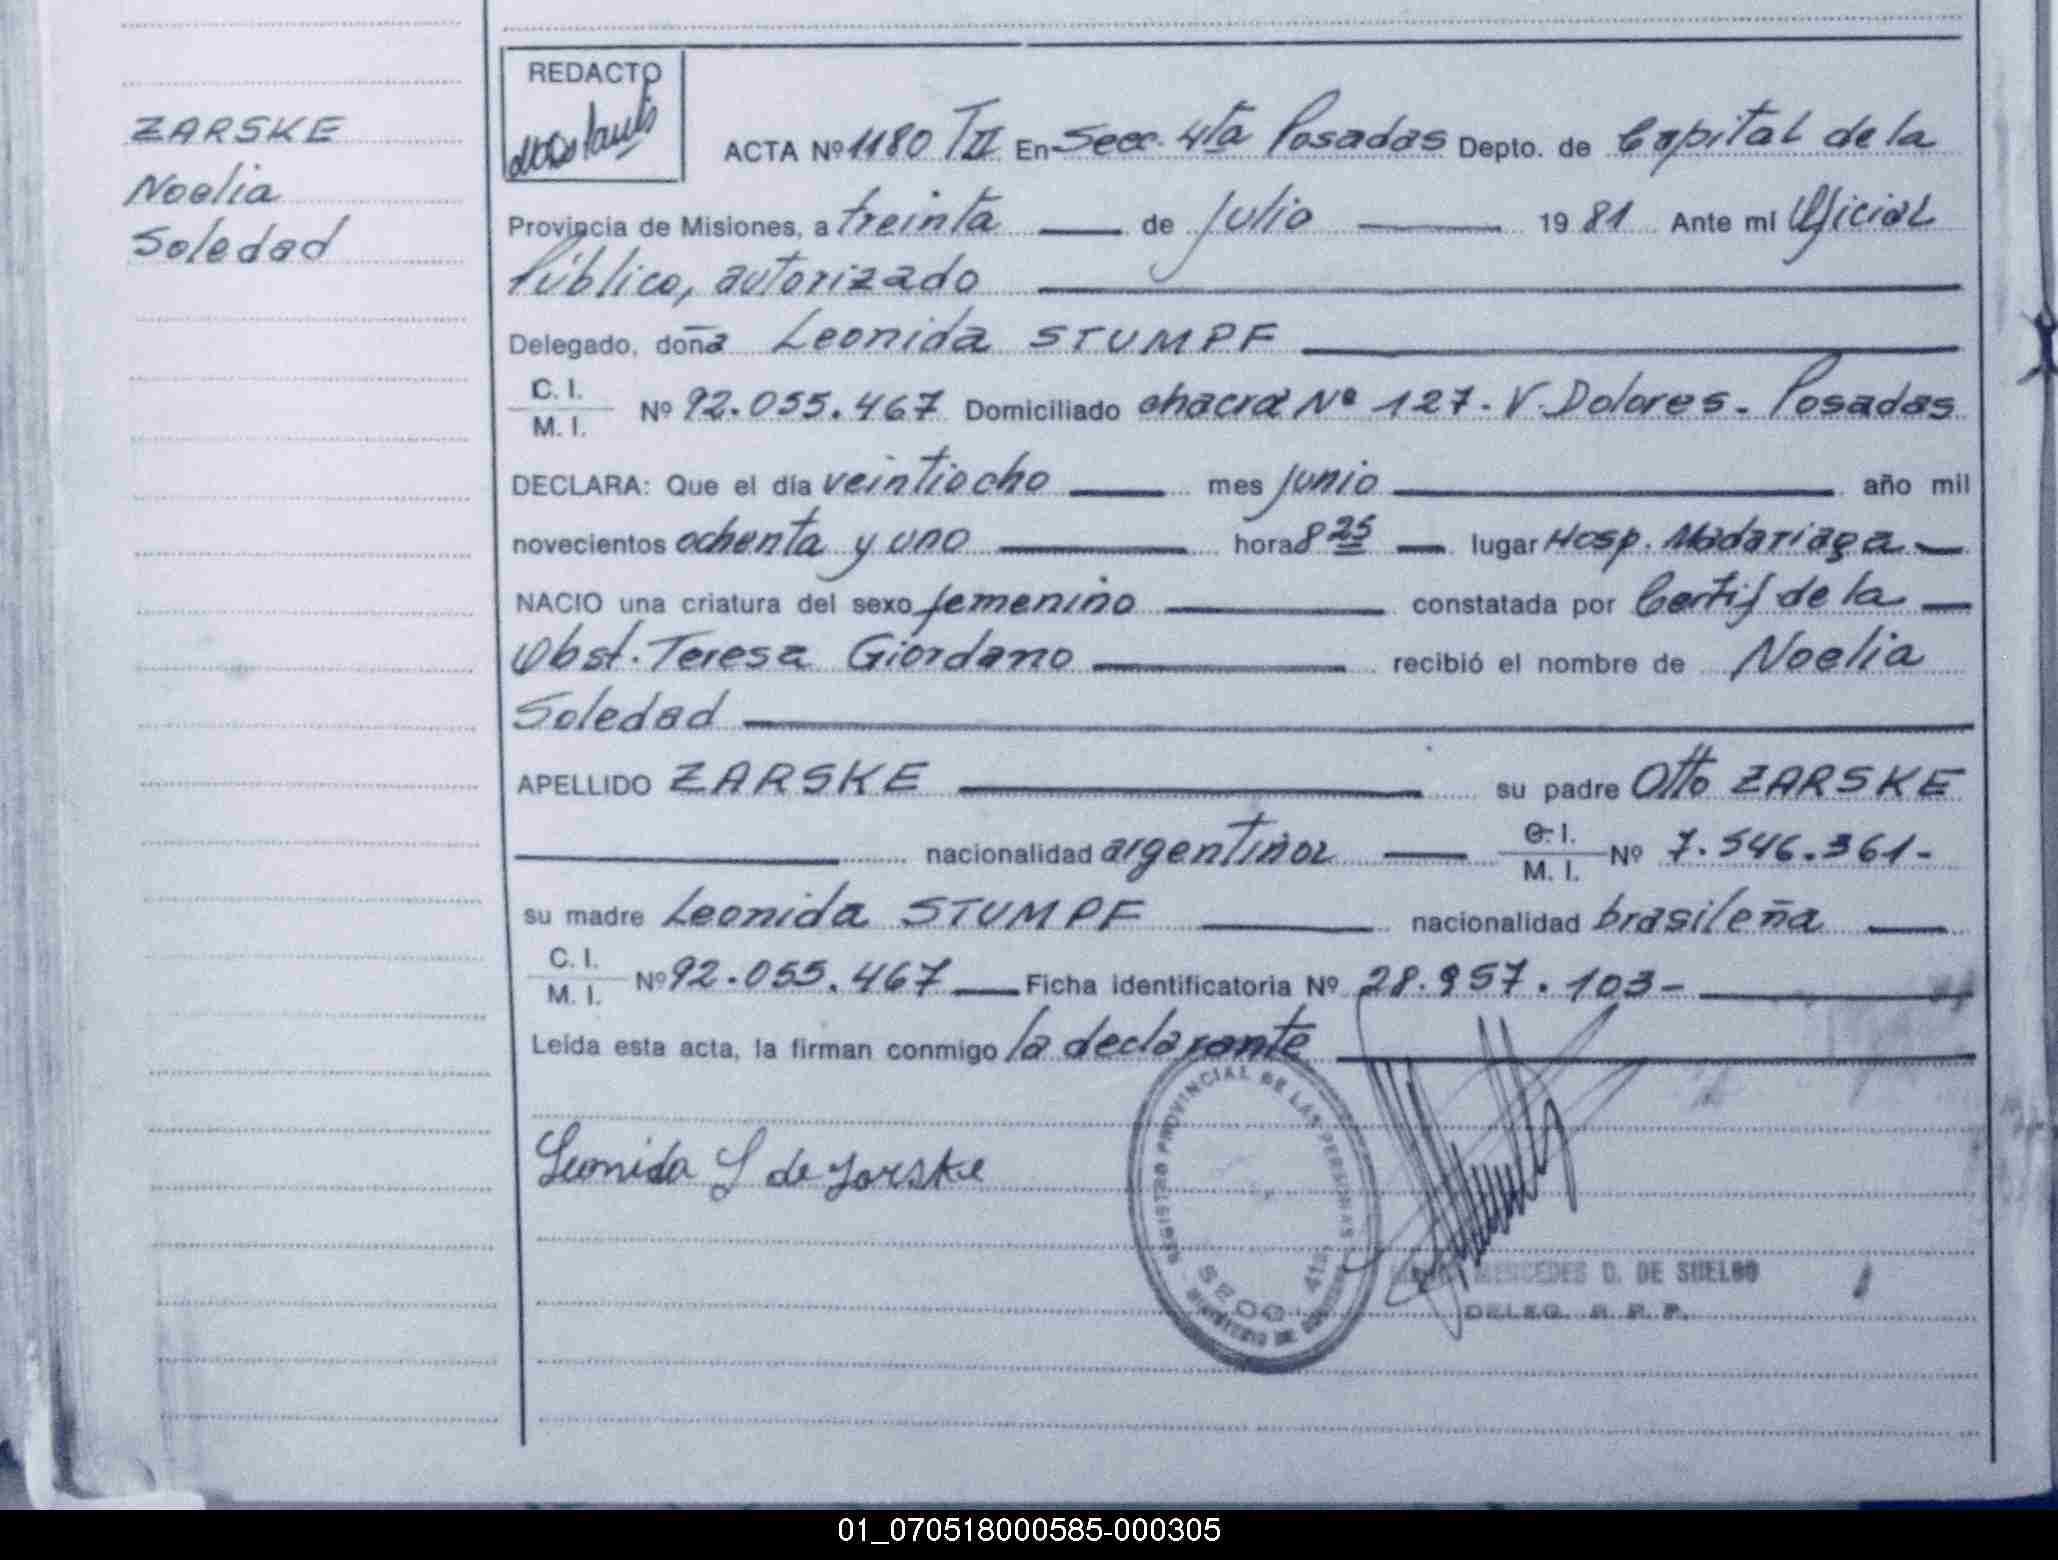 ZARSKE
Noelia
Soledad
REDACTO
ACTA Nº 1180 TII En Secc. 4ta Posadas Depto. de Capital de la
Provincia de Misiones, a treinta de Julio 1981 Ante mí Oficial
Público, autorizado
Delegado, doña Leonida STUMPF
C. I.
M. I. Nº 92.055.467 Domiciliado chacra Nº 127. V. Dolores. Posadas
DECLARA: Que el día veintiocho mes junio año mil
novecientos ochenta y uno hora 8 25 lugar Hosp. Madariaga
NACIO una criatura del sexo femenino constatada por Certif de la
Obst. Teresa Giordano recibió el nombre de Noelia
Soledad
APELLIDO ZARSKE su padre Otto ZARSKE
nacionalidad argentina C. I.
M. I. Nº 7.546.361-
su madre Leonida STUMPF nacionalidad brasileña
C. I.
M. I. Nº 92.055.467 Ficha identificatoria Nº 28.957.103-
Leída esta acta, la firman conmigo la declarante
REGISTRO PROVINCIAL DE LAS PERSONAS
Leonida S de Zarske
MERCEDES D. DE SUELDO
DELEG. R. P. P.
01_070518000585-000305